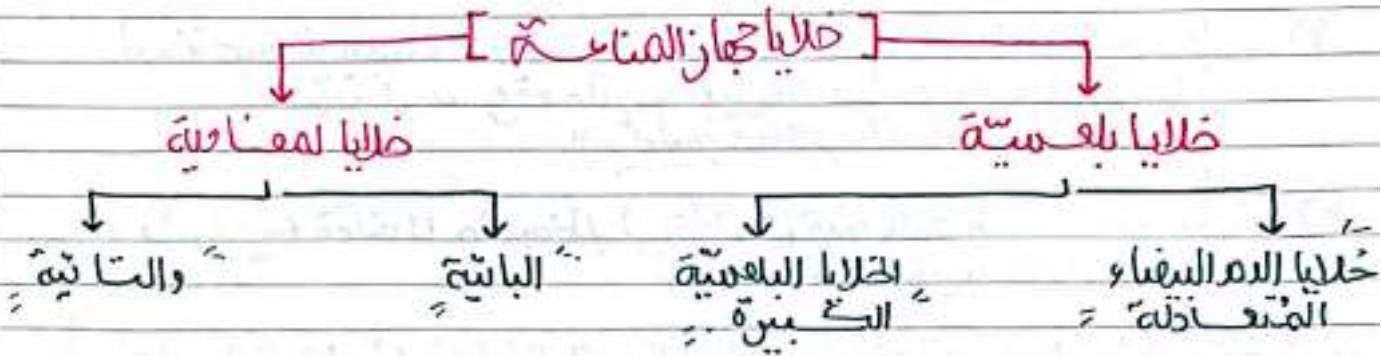 [خلايا جهاز المناعة]
خلايا بلعميّة
خلايا لمفاوية
"خلايا الدم البيضاء
المُتعادلة"
"الخلايا البلعميّة
الكبيرة"
"البائيّة"
"والتائيّة"